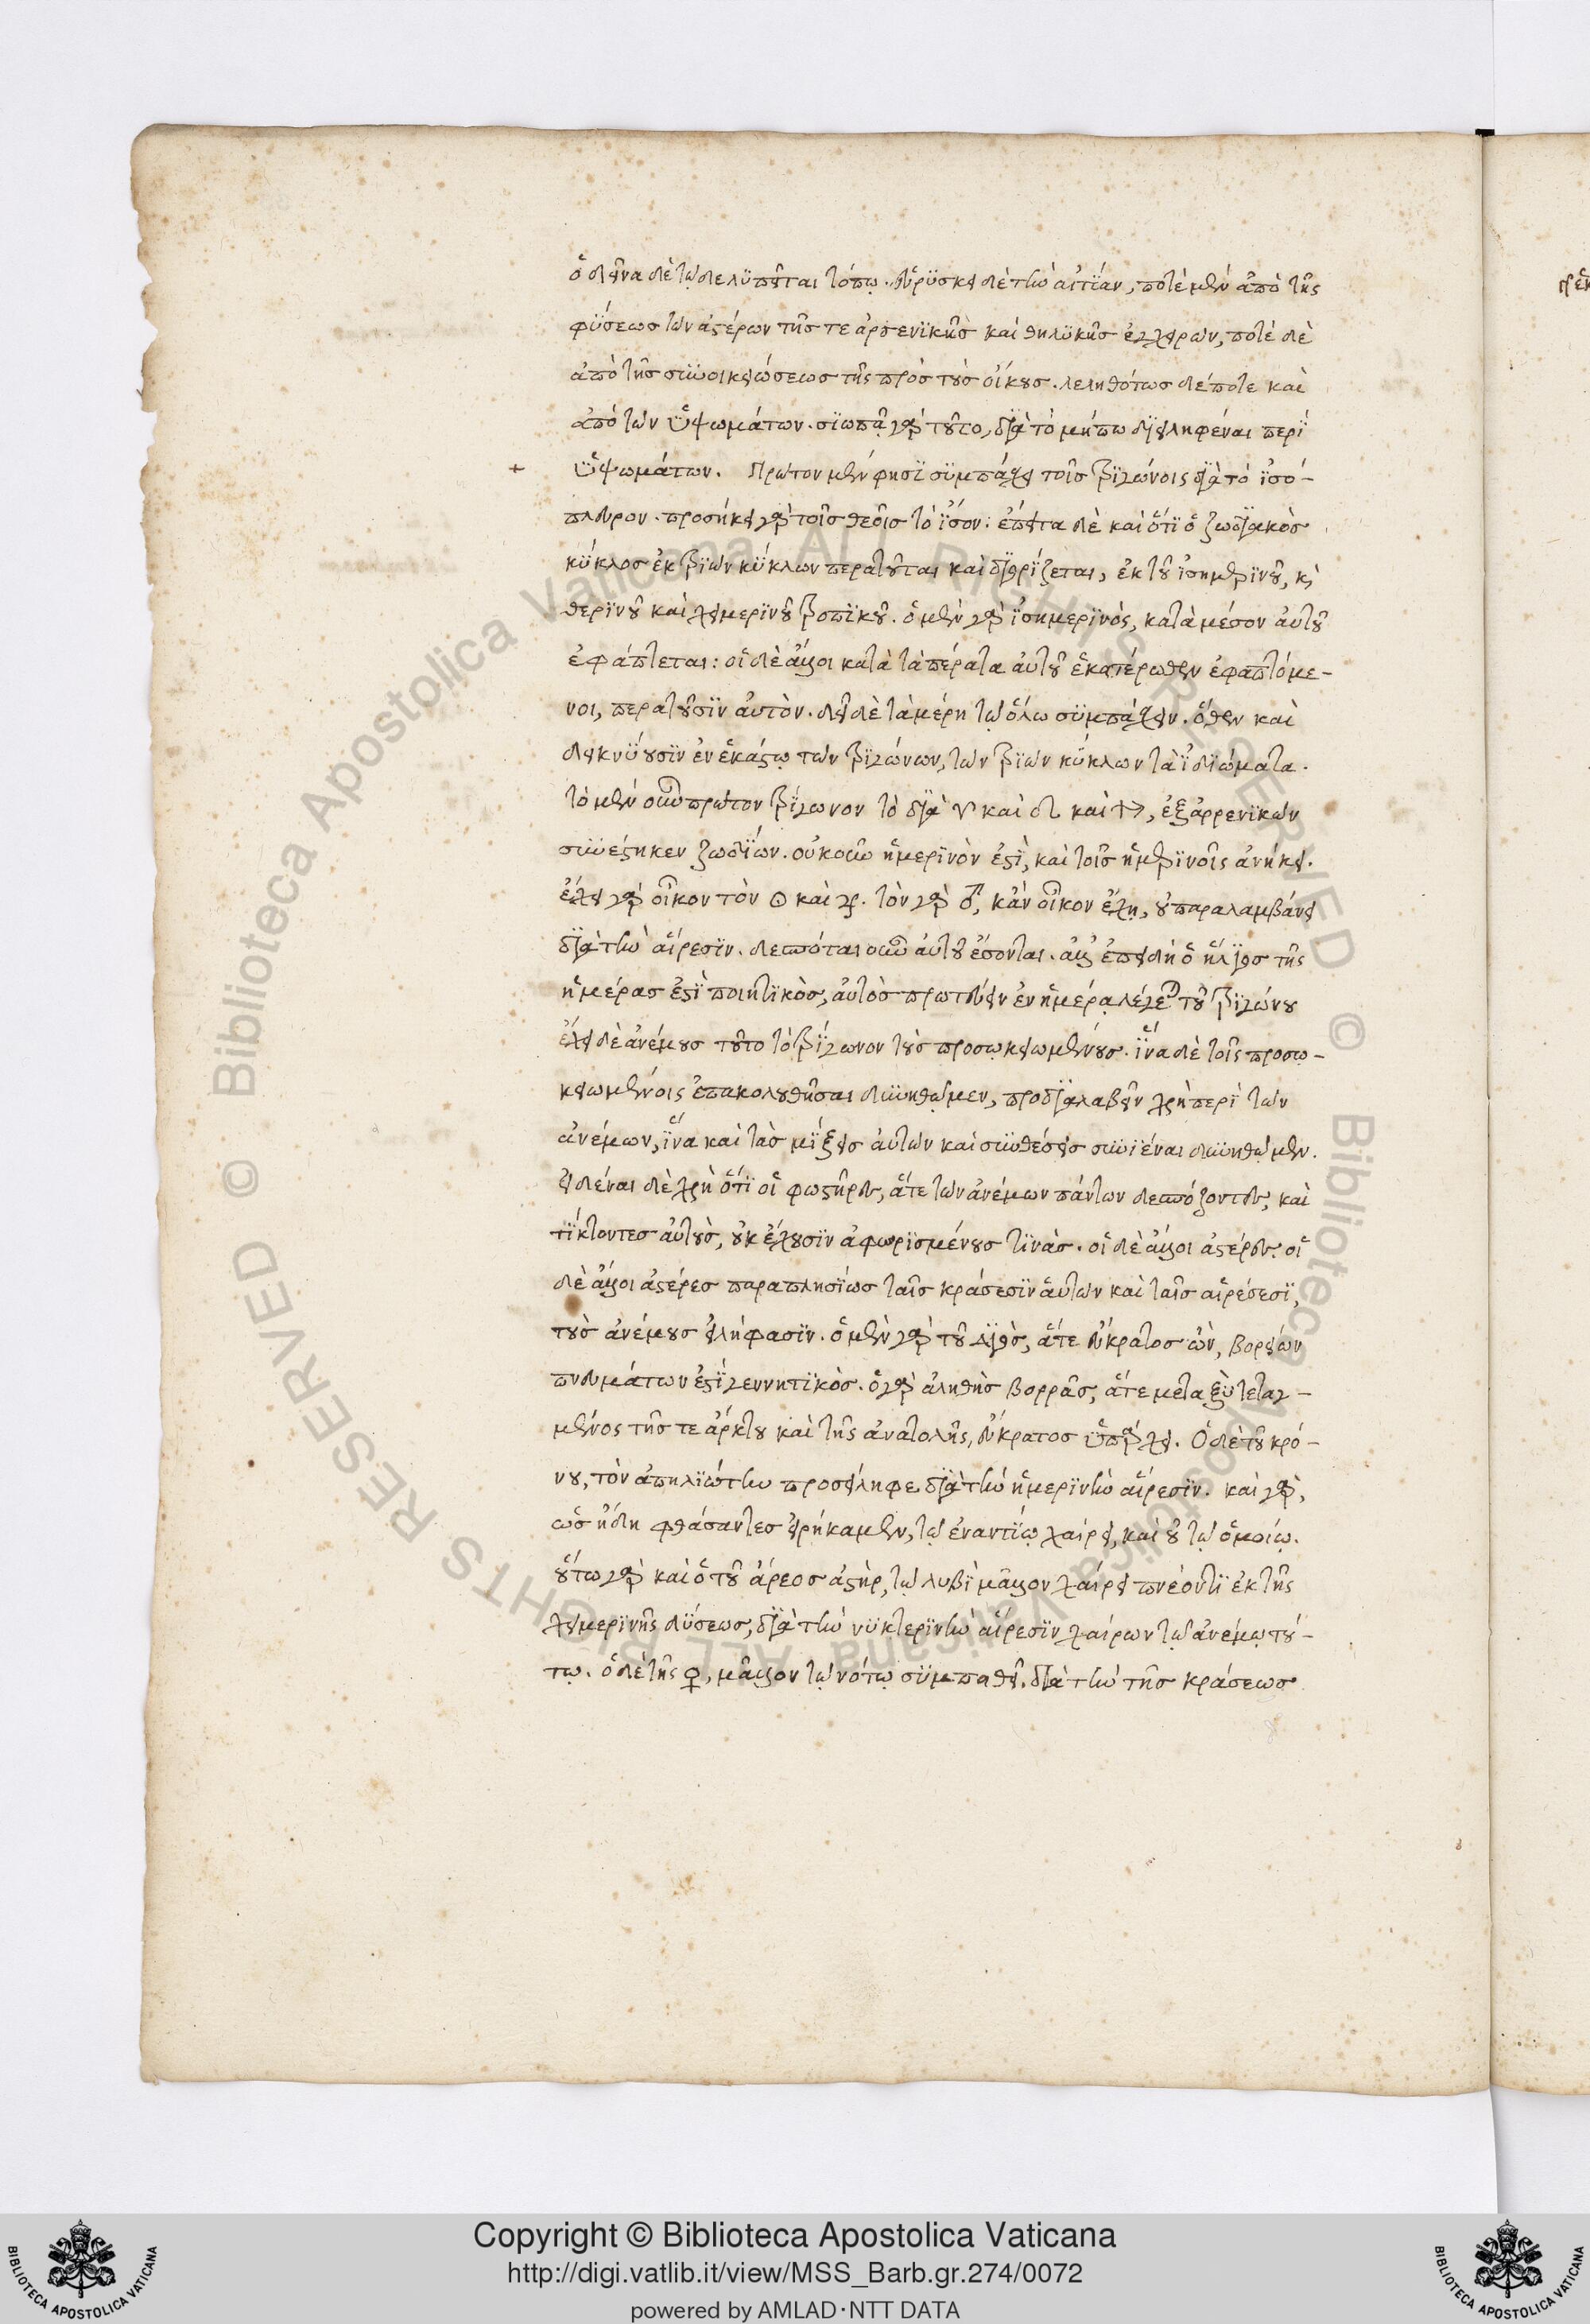 ὁ δεῖνα δὲ τῷδε λυπεῖται τόπῳ. εὑρίσκει δὲ τὴν αἰτίαν, ποτὲ μὲν ἀπὸ τῆς
φύσεως τῶν ἀστέρων τῆς τε ἀρσενικῆς καὶ θηλυκῆς ἐγχειρῶν, ποτὲ δὲ
ἀπὸ τῆς συνοικειώσεως τῆς πρὸς τοὺς οἴκους. λεληθότως δέ ποτε καὶ
ἀπὸ τῶν ὑψωμάτων. σιωπᾷ γὰρ τοῦτο, διὰ τὸ μήπω διειληφέναι περὶ
ὑψωμάτων. Πρῶτον μὲν φησὶ συμπάσχει τοῖς τριγώνοις διὰ τὸ ἰσό-
πλευρον. προσήκει γὰρ τοῖς θεοῖς τὸ ἴσον. ἔπειτα δὲ καὶ ὅτι ὁ ζωδιακὸς
κύκλος ἐκ τριῶν κύκλων περατοῦται καὶ διορίζεται, ἐκ τοῦ ἰσημερινοῦ, καὶ
θερινοῦ καὶ χειμερινοῦ τροπικοῦ. ὁ μὲν γὰρ ἰσημερινὸς, κατὰ μέσον αὐτοῦ
ἐφάπτεται: οἱ δὲ ἄλλοι κατὰ τὰ πέρατα αὐτοῦ ἑκατέρωθεν ἐφαπτόμε-
νοι, περατοῦσιν αὐτὸν. δεῖ δὲ τὰ μέρη τῷ ὅλω συμπάσχειν. ὅθεν καὶ
δεικνύουσιν ἐν ἑκάστῳ τῶν τριγώνων, τῶν τριῶν κύκλων τὰ ἰδιώματα.
τὸ μὲν οὖν πρῶτον τρίγωνον τὸ διὰ ♈ καὶ ♌ καὶ ♐, ἐξ ἀρρενικῶν
συνέστηκεν ζωδίων. οὐκοῦν ἡμερινὸν ἐστὶ, καὶ τοῖς ἡμερινοῖς ἀνήκει.
ἔχει γὰρ οἶκον τὸν ☉ καὶ ♃. τὸν γὰρ ♂, κἂν οἶκον ἔχῃ, οὐ παραλαμβάνει
διὰ τὴν αἵρεσιν. δεσπόται οὖν αὐτοῦ ἔσονται. ἀλλ' ἐπειδὴ ὁ ἥλιος τῆς
ἡμέρας ἐστὶ ποιητικὸς, αὐτὸς πρωτεύειν ἐν ἡμέρᾳ λέγεται τοῦ τριγώνου
ἔχει δὲ ἀνέμους τοῦτο τὸ τρίγωνον τοὺς προσῳκειωμένους. ἵνα δὲ τοῖς προσῳ-
κειωμένοις ἐπακολουθῆσαι δυνηθῶμεν, προδιαλαβεῖν χρὴ περὶ τῶν
ἀνέμων, ἵνα καὶ τὰς μίξεις αὐτῶν καὶ συνθέσεις συνιέναι δυνηθῶμεν.
εἰδέναι δὲ χρὴ ὅτι οἱ φωστῆρες, ἅτε τῶν ἀνέμων πάντων δεσπόζοντες, καὶ
τίκτοντες αὐτοὺς, οὐκ ἔχουσιν ἀφωρισμένους τινὰς. οἱ δὲ ἄλλοι ἀστέρες. οἱ
δὲ ἄλλοι ἀστέρες παραπλησίως ταῖς κράσεσιν αὑτῶν καὶ ταῖς αἱρέσεσι,
τοὺς ἀνέμους εἰλήφασιν. ὁ μὲν γὰρ τοῦ Διὸς, ἅτε εὔκρατος ὢν, βορείων
πνευμάτων ἐστὶ γεννητικὸς. ὁ γὰρ ἀληθὴς βορρᾶς, ἅτε μεταξὺ τεταγ-
μένος τῆς τε ἄρκτου καὶ τῆς ἀνατολῆς, εὔκρατος ὑπάρχει. Ὁ δὲ τοῦ κρό-
νου, τὸν ἀπηλιώτην προσείληφε διὰ τὴν ἡμερινὴν αἵρεσιν. καὶ γὰρ,
ὡς ἤδη φθάσαντες εἰρήκαμεν, τῷ ἐναντίῳ χαίρει, καὶ οὐ τῷ ὁμοίῳ.
οὕτω γὰρ καὶ ὁ τοῦ ἄρεος ἀστὴρ, τῷ λυβὶ μᾶλλον χαίρει πνέοντι ἐκ τῆς
χειμερινῆς δύσεως, διὰ τὴν νυκτερινὴν αἵρεσιν χαίρων τῷ ἀνέμῳ τού-
τῳ. ὁ δὲ τῆς ♀, μᾶλλον τῷ νότῳ συμπαθεῖ. διὰ τὴν τῆς κράσεως
Copyright © Biblioteca Apostolica Vaticana
http://digi.vatlib.it/view/MSS_Barb.gr.274/0072
powered by AMLAD·NTT DATA